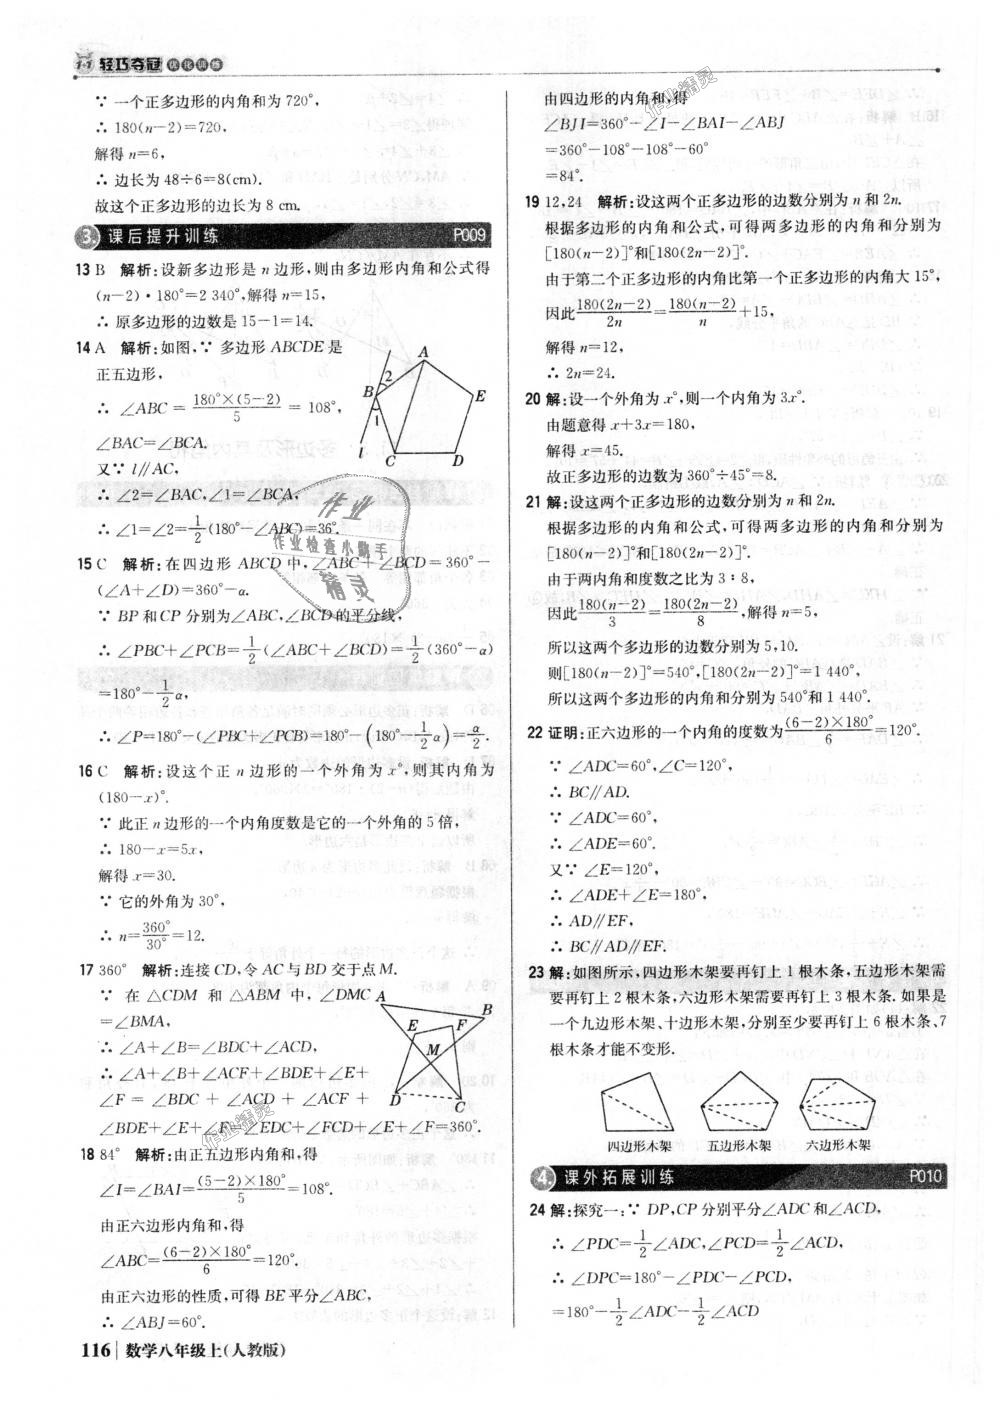 1+1 轻巧夺冠 优化训练
∵ 一个正多边形的内角和为 720°,
∴ 180(n−2)=720,
解得 n=6,
∴ 边长为 48÷6=8(cm).
故这个正多边形的边长为 8 cm.
3. 课后提升训练 P009
13 B 解析:设新多边形是 n 边形,则由多边形内角和公式得
(n−2)·180°=2 340°,解得 n=15,
∴ 原多边形的边数是 15−1=14.
14 A 解析:如图,∵ 多边形 ABCDE 是
正五边形,
∴ ∠ABC = 180°×(5−2)/5 = 108°,
∠BAC=∠BCA.
又∵ l∥AC,
∴ ∠2=∠BAC,∠1=∠BCA,
∴ ∠1=∠2=1/2(180°−∠ABC)=36°.
A
B
2
1
E
l
C
D
15 C 解析:在四边形 ABCD 中,∠ABC+∠BCD=360°−
(∠A+∠D)=360°−α.
∵ BP 和 CP 分别为∠ABC,∠BCD的平分线,
∴ ∠PBC+∠PCB=1/2(∠ABC+∠BCD)=1/2(360°−α)
=180°−1/2α,
∴ ∠P=180°−(∠PBC+∠PCB)=180°−(180°−1/2α)=α/2.
16 C 解析:设这个正 n 边形的一个外角为 x°,则其内角为
(180−x)°.
∵ 此正 n 边形的一个内角度数是它的一个外角的 5 倍,
∴ 180−x=5x,
解得 x=30.
∵ 它的外角为 30°,
∴ n=360°/30°=12.
17 360° 解析:连接 CD,令 AC 与 BD 交于点 M.
∵ 在 △CDM 和 △ABM 中,∠DMC
=∠BMA,
∴ ∠A+∠B=∠BDC+∠ACD,
∴ ∠A+∠B+∠ACF+∠BDE+∠E+
∠F = ∠BDC + ∠ACD + ∠ACF +
∠BDE+∠E+∠F=∠EDC+∠FCD+∠E+∠F=360°.
A
B
E
F
M
D
C
18 84° 解析:由正五边形内角和,得
∠I=∠BAI=(5−2)×180°/5=108°.
由正六边形内角和,得
∠ABC=(6−2)×180°/6=120°.
由正六边形的性质,可得 BE 平分∠ABC,
∴ ∠ABJ=60°.
116 数学八年级上(人教版)
由四边形的内角和,得
∠BJI=360°−∠I−∠BAI−∠ABJ
=360°−108°−108°−60°
=84°.
19 12,24 解析:设这两个正多边形的边数分别为 n 和 2n.
根据多边形的内角和公式,可得两多边形的内角和分别为
[180(n−2)]°和[180(2n−2)]°.
由于第二个正多边形的内角比第一个正多边形的内角大 15°,
因此180(2n−2)/2n=180(n−2)/n+15,
解得 n=12,
∴ 2n=24.
20 解:设一个外角为 x°,则一个内角为 3x°.
由题意得 x+3x=180,
解得 x=45.
故正多边形的边数为 360°÷45°=8.
21 解:设这两个正多边形的边数分别为 n 和 2n.
根据多边形的内角和公式,可得两多边形的内角和分别为
[180(n−2)]°和[180(2n−2)]°.
由于两内角和度数之比为 3∶8,
因此180(n−2)/3=180(2n−2)/8,解得 n=5,
所以这两个多边形的边数分别为 5,10.
则[180(n−2)]°=540°,[180(2n−2)]°=1 440°,
所以这两个多边形的内角和分别为 540°和 1 440°.
22 证明:正六边形的一个内角的度数为(6−2)×180°/6=120°.
∵ ∠ADC=60°,∠C=120°,
∴ BC∥AD.
∵ ∠ADC=60°,
∴ ∠ADE=60°.
又∵ ∠E=120°,
∴ ∠ADE+∠E=180°,
∴ AD∥EF,
∴ BC∥AD∥EF.
23 解:如图所示,四边形木架要再钉上 1 根木条,五边形木架需
要再钉上 2 根木条,六边形木架需要再钉上 3 根木条. 如果是
一个九边形木架、十边形木架,分别至少要再钉上 6 根木条、7
根木条才能不变形.
四边形木架 五边形木架 六边形木架
4. 课外拓展训练 P010
24 解:探究一:∵ DP,CP 分别平分∠ADC 和∠ACD,
∴ ∠PDC=1/2∠ADC,∠PCD=1/2∠ACD,
∴ ∠DPC=180°−∠PDC−∠PCD,
=180°−1/2∠ADC−1/2∠ACD
作业
作业检查小助手
精灵
作业精灵
作业精灵